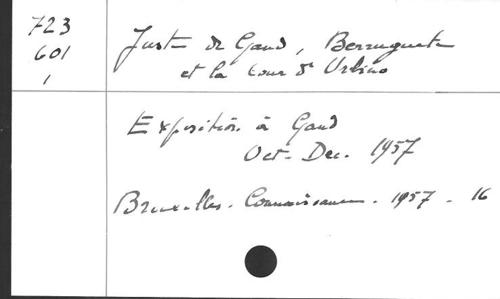 723
601
1
Juste de Gand, Berruguete
et la Cour d'Urbino
Exposition à Gand
Oct-Dec. 1957
Bruxelles. Connaissance. 1957. 16